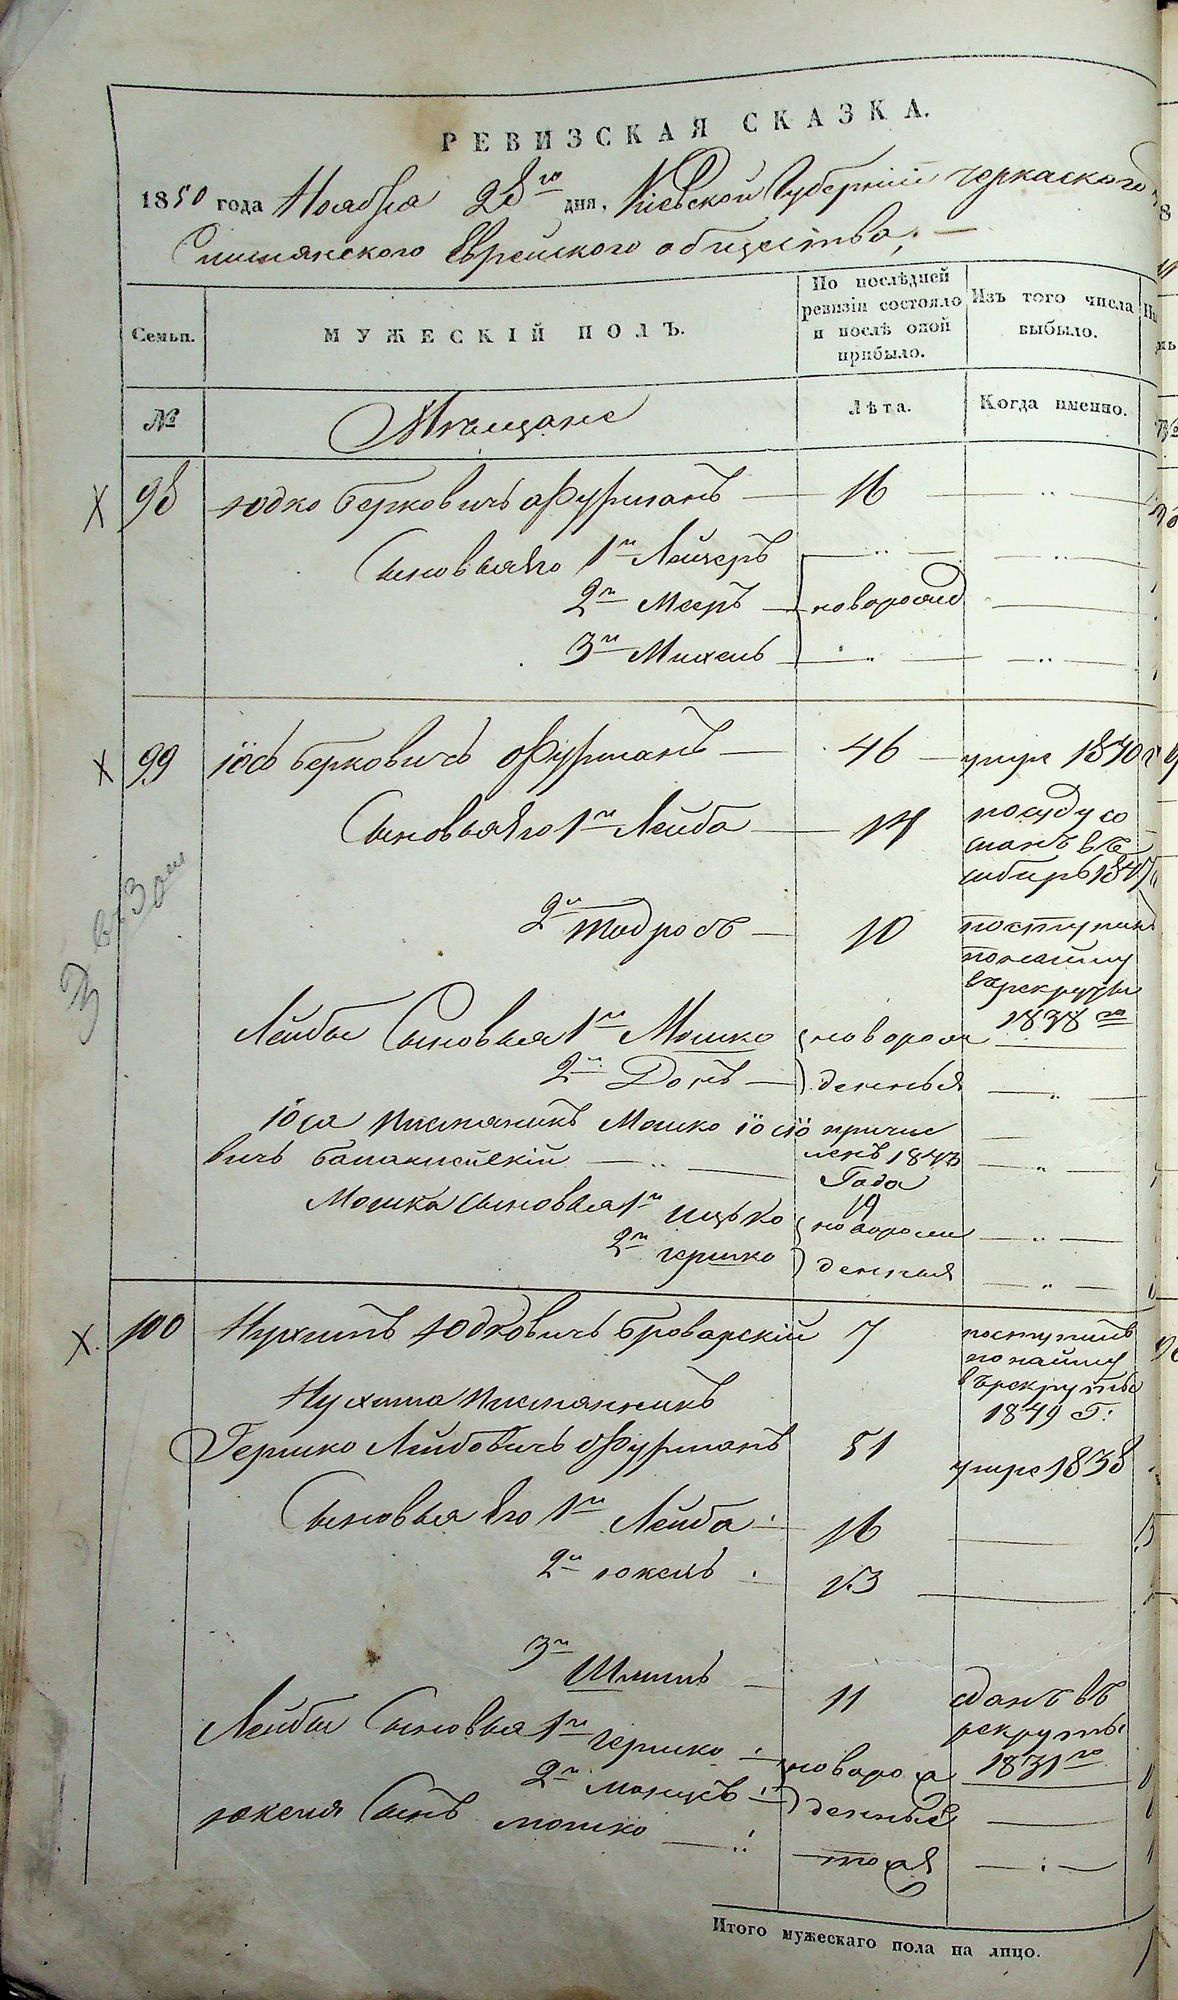 РЕВИЗСКАЯ СКАЗКА.
1850 года Ноября 28го дня, Киевской Губерніи Черкаского
Смилянского Еврейского общества;
Семьи. МУЖЕСКІЙ ПОЛЪ. По послѣдней ревизіи состояло и послѣ оной прибыло. Изъ того числа выбыло.
№ Мѣщане Лѣта. Когда именно.
98 Юдко Берковичъ Фурманъ 16
Сыновья Его 1й Лейзеръ
2й Мееръ новорожд
3й Михель
99 Іосъ Берковичъ Фурманъ 46 умре 1840
Сыновья Его 1й Лейба 14 посуду со
сланъ въ
сибирь 184
2й Тодросъ 10 поступил
по найму
въ рекруты
1838го
Лейбы Сыновья 1й Мошко новорож
2й Донъ денныя
Іося племяникъ Мошко Іосіо причис
вичъ ленъ 1843
Года
19
Мошка сыновья 1й Ицько новорож
2й Гершко денныя
100 Нухимъ Юдковичъ Броварскій 7 поступилъ
по найму
въ рекруты
1849 Г:
Нухима племянникъ
Гершко Лейбовичъ Фурманъ 51 умре 1838
Сыновья Его 1й Лейба 16
2й Юкель 13
3й Шлиомъ 11 сданъ въ
рекруты
1831го
Лейбы Сыновья 1й Гершко новорож
2й денные
Юкеля Сынъ Мошко тожъ
Итого мужескаго пола на лицо.